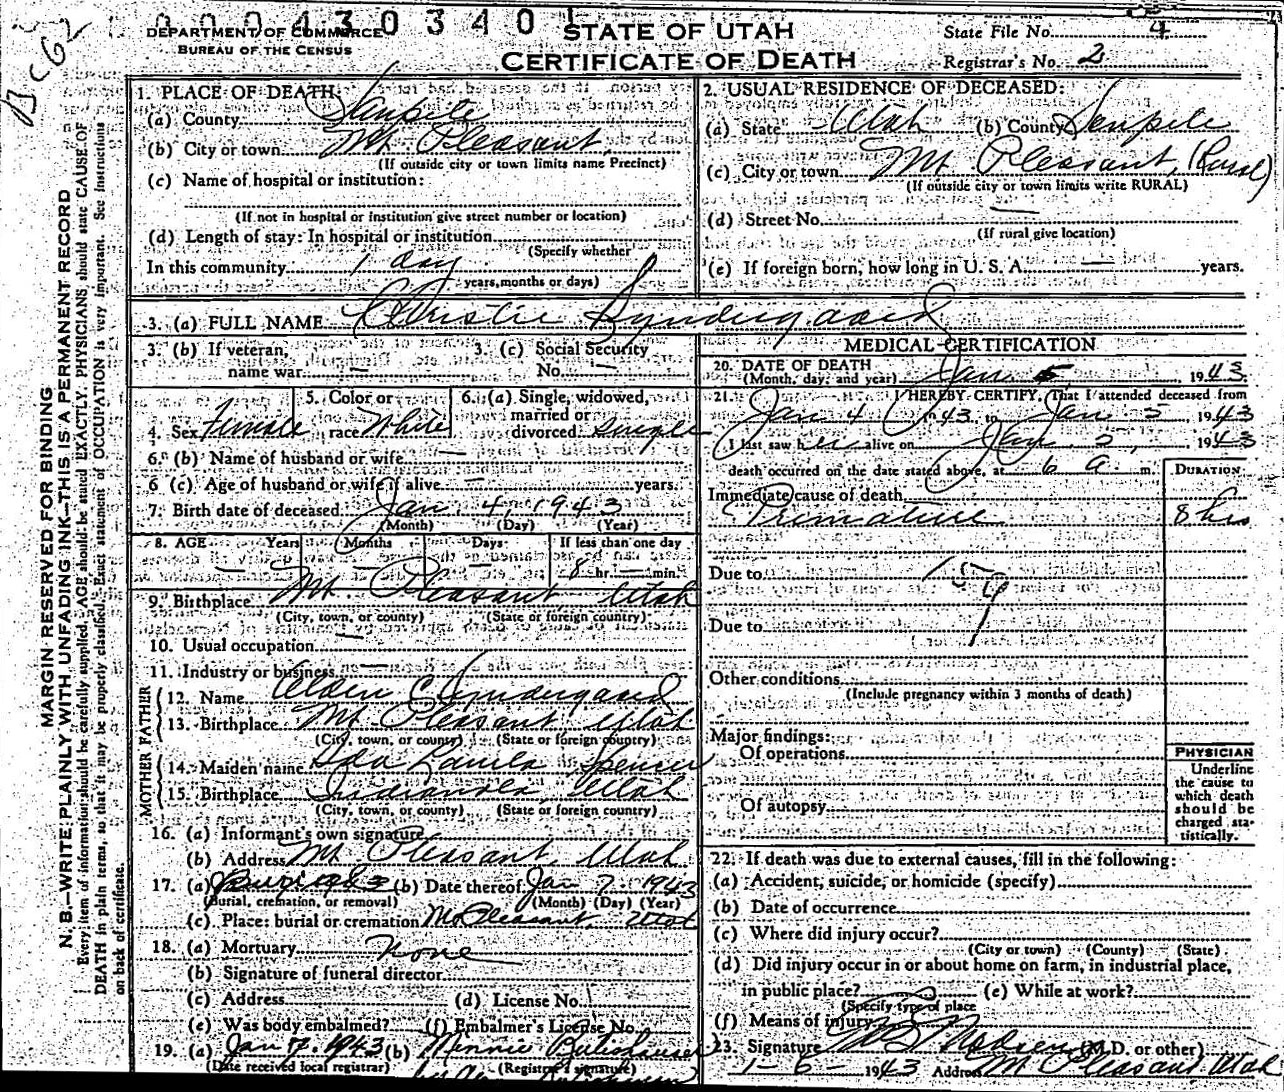 0 0 0 4 3 0 3 4 0 1
DEPARTMENT OF COMMERCE
BUREAU OF THE CENSUS
STATE OF UTAH
CERTIFICATE OF DEATH
State File No. 4
Registrar's No. 2
MARGIN RESERVED FOR BINDING
N. B.—WRITE PLAINLY WITH UNFADING INK—THIS IS A PERMANENT RECORD
Every item of information should be carefully supplied. AGE should be stated EXACTLY. PHYSICIANS should state CAUSE OF
DEATH in plain terms, so that it may be properly classified. Exact statement of OCCUPATION is very important. See instructions
on back of certificate.
1. PLACE OF DEATH:
(a) County Sanpete
(b) City or town Mt Pleasant
(If outside city or town limits name Precinct)
(c) Name of hospital or institution:
(If not in hospital or institution give street number or location)
(d) Length of stay: In hospital or institution
(Specify whether
In this community 1 day
years, months or days)
2. USUAL RESIDENCE OF DECEASED:
(a) State Utah (b) County Sanpete
(c) City or town Mt Pleasant, (Rural)
(If outside city or town limits write RURAL)
(d) Street No. —
(If rural give location)
(e) If foreign born, how long in U. S. A. — years.
3. (a) FULL NAME Christie Syndergaard
3. (b) If veteran,
name war —
3. (c) Social Security
No. —
4. Sex Female
5. Color or
race White
6. (a) Single, widowed,
married or
divorced single
6. (b) Name of husband or wife —
6 (c) Age of husband or wife if alive — years.
7. Birth date of deceased Jan. 4, 1943
(Month) (Day) (Year)
8. AGE Years Months Days If less than one day
— — — 8 hr. — min.
9. Birthplace Mt Pleasant Utah
(City, town, or county) (State or foreign country)
10. Usual occupation —
11. Industry or business —
FATHER
12. Name Alden Syndergaard
13. Birthplace Mt Pleasant Utah
(City, town, or county) (State or foreign country)
MOTHER
14. Maiden name Ida Spencer
15. Birthplace Indianola Utah
(City, town, or county) (State or foreign country)
16. (a) Informant's own signature
(b) Address Mt Pleasant, Utah
17. (a) Burial (b) Date thereof Jan 7 1943
(Burial, cremation, or removal) (Month) (Day) (Year)
(c) Place: burial or cremation Mt Pleasant, Utah
18. (a) Mortuary None
(b) Signature of funeral director
(c) Address (d) License No.
(e) Was body embalmed? (f) Embalmer's License No.
19. (a) Jan 1943 (b) Minnie
(Date received local registrar) (Registrar's signature)
MEDICAL CERTIFICATION
20. DATE OF DEATH
(Month, day, and year) Jan 5, 1943
21. I HEREBY CERTIFY, That I attended deceased from
Jan 4 1943 to Jan 5 1943
I last saw her alive on Jan 5 1943
death occurred on the date stated above, at 6 a. m.
DURATION
Immediate cause of death
Primature 8 hrs
Due to 159
Due to
Other conditions
(Include pregnancy within 3 months of death)
Major findings:
Of operations
Of autopsy
PHYSICIAN
Underline
the cause to
which death
should be
charged sta-
tistically.
22. If death was due to external causes, fill in the following:
(a) Accident, suicide, or homicide (specify)
(b) Date of occurrence
(c) Where did injury occur?
(City or town) (County) (State)
(d) Did injury occur in or about home on farm, in industrial place,
in public place? (e) While at work?
(Specify type of place
(f) Means of injury
23. Signature Madsen (M.D. or other)
1-6- 1943 Address Mt Pleasant Utah